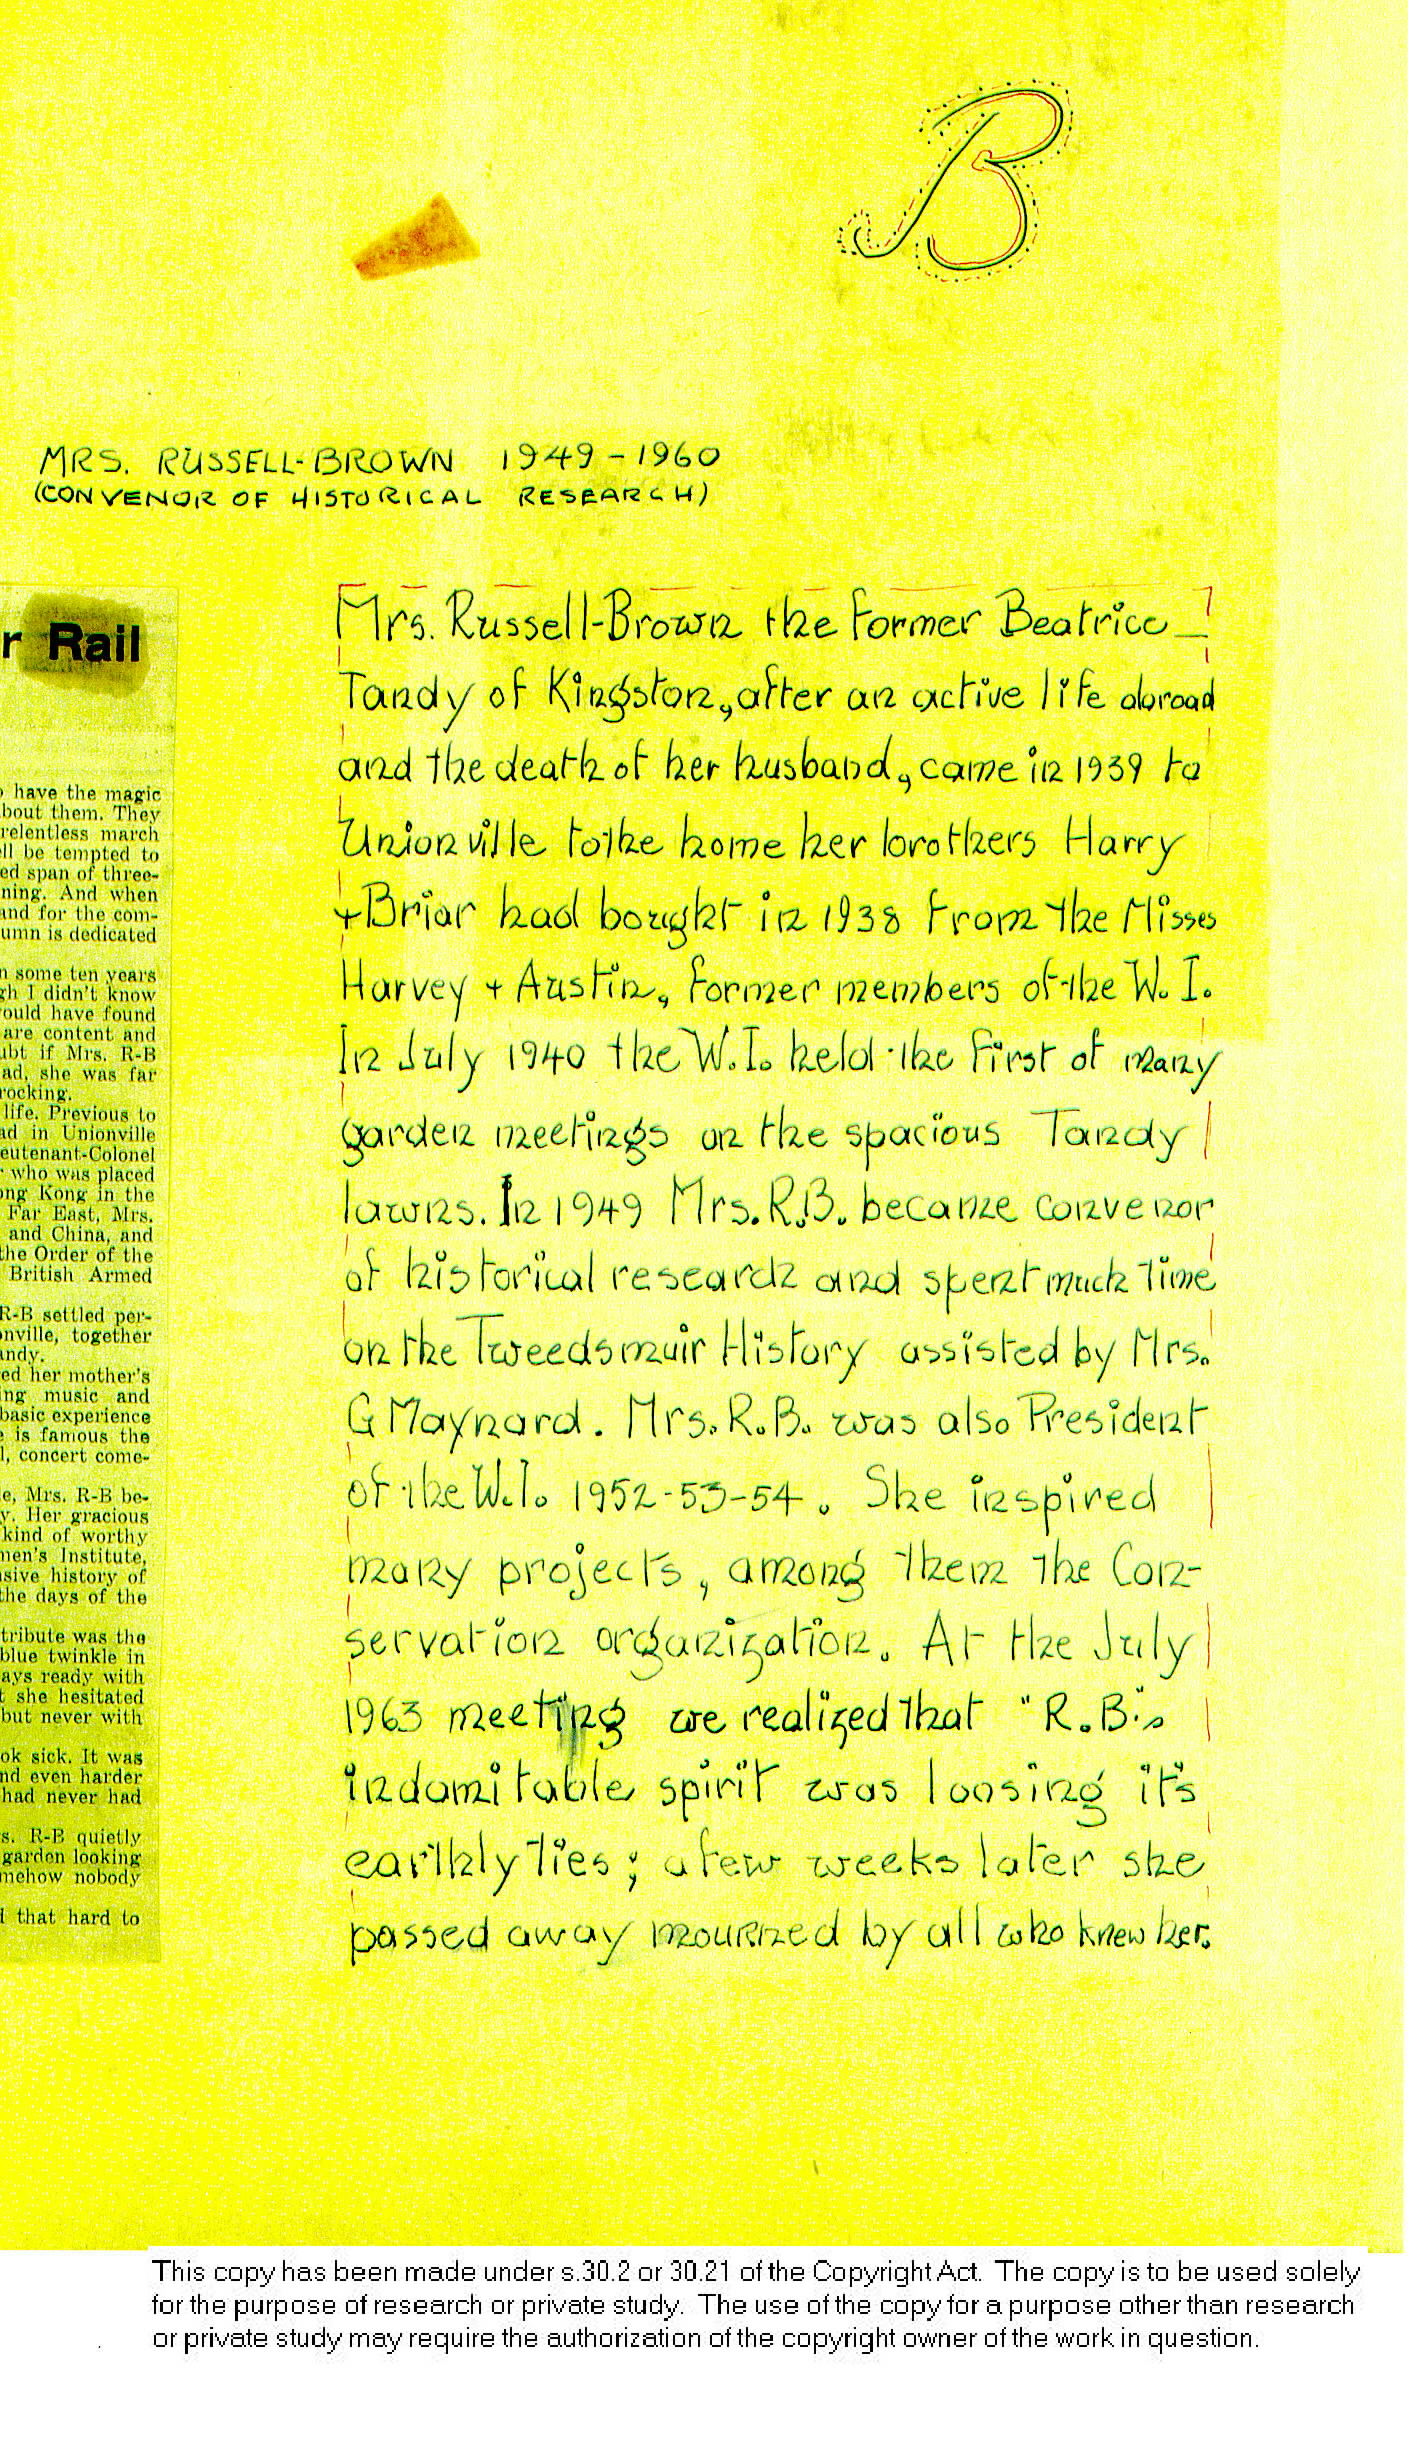 B
MRS. RUSSELL-BROWN 1949-1960
(CONVENOR OF HISTORICAL RESEARCH)
r Rail
have the magic
bout them. They
relentless march
ll be tempted to
ed span of three-
ning. And when
and for the com-
umn is dedicated
n some ten years
gh I didn't know
ould have found
are content and
ubt if Mrs. R-B
ad, she was far
rocking.
life. Previous to
ad in Unionville
eutenant-Colonel
who was placed
ong Kong in the
Far East, Mrs.
and China, and
the Order of the
British Armed
R-B settled per-
nville, together
andy.
ed her mother's
ing music and
basic experience
is famous the
l, concert come-
e, Mrs. R-B be-
y. Her gracious
kind of worthy
men's Institute,
sive history of
the days of the
tribute was the
blue twinkle in
ays ready with
t she hesitated
but never with
ok sick. It was
nd even harder
had never had
s. R-B quietly
garden looking
mehow nobody
d that hard to
Mrs. Russell-Brown the former Beatrice
Tandy of Kingston, after an active life abroad
and the death of her husband, came in 1939 to
Unionville to the home her brothers Harry
+ Briar had bought in 1938 from the Misses
Harvey + Austin, former members of the W. I.
In July 1940 the W.I. held the first of many
garden meetings on the spacious Tandy
lawns. In 1949 Mrs. R.B. became convenor
of historical research and spent much time
on the Tweedsmuir History assisted by Mrs.
G Maynard. Mrs. R.B. was also President
of the W.I. 1952-53-54. She inspired
many projects, among them the Con-
servation organization. At the July
1963 meeting we realized that "R.B."s
indomitable spirit was loosing it's
earthly ties; a few weeks later she
passed away mourned by all who knew her.
This copy has been made under s.30.2 or 30.21 of the Copyright Act. The copy is to be used solely
for the purpose of research or private study. The use of the copy for a purpose other than research
or private study may require the authorization of the copyright owner of the work in question.